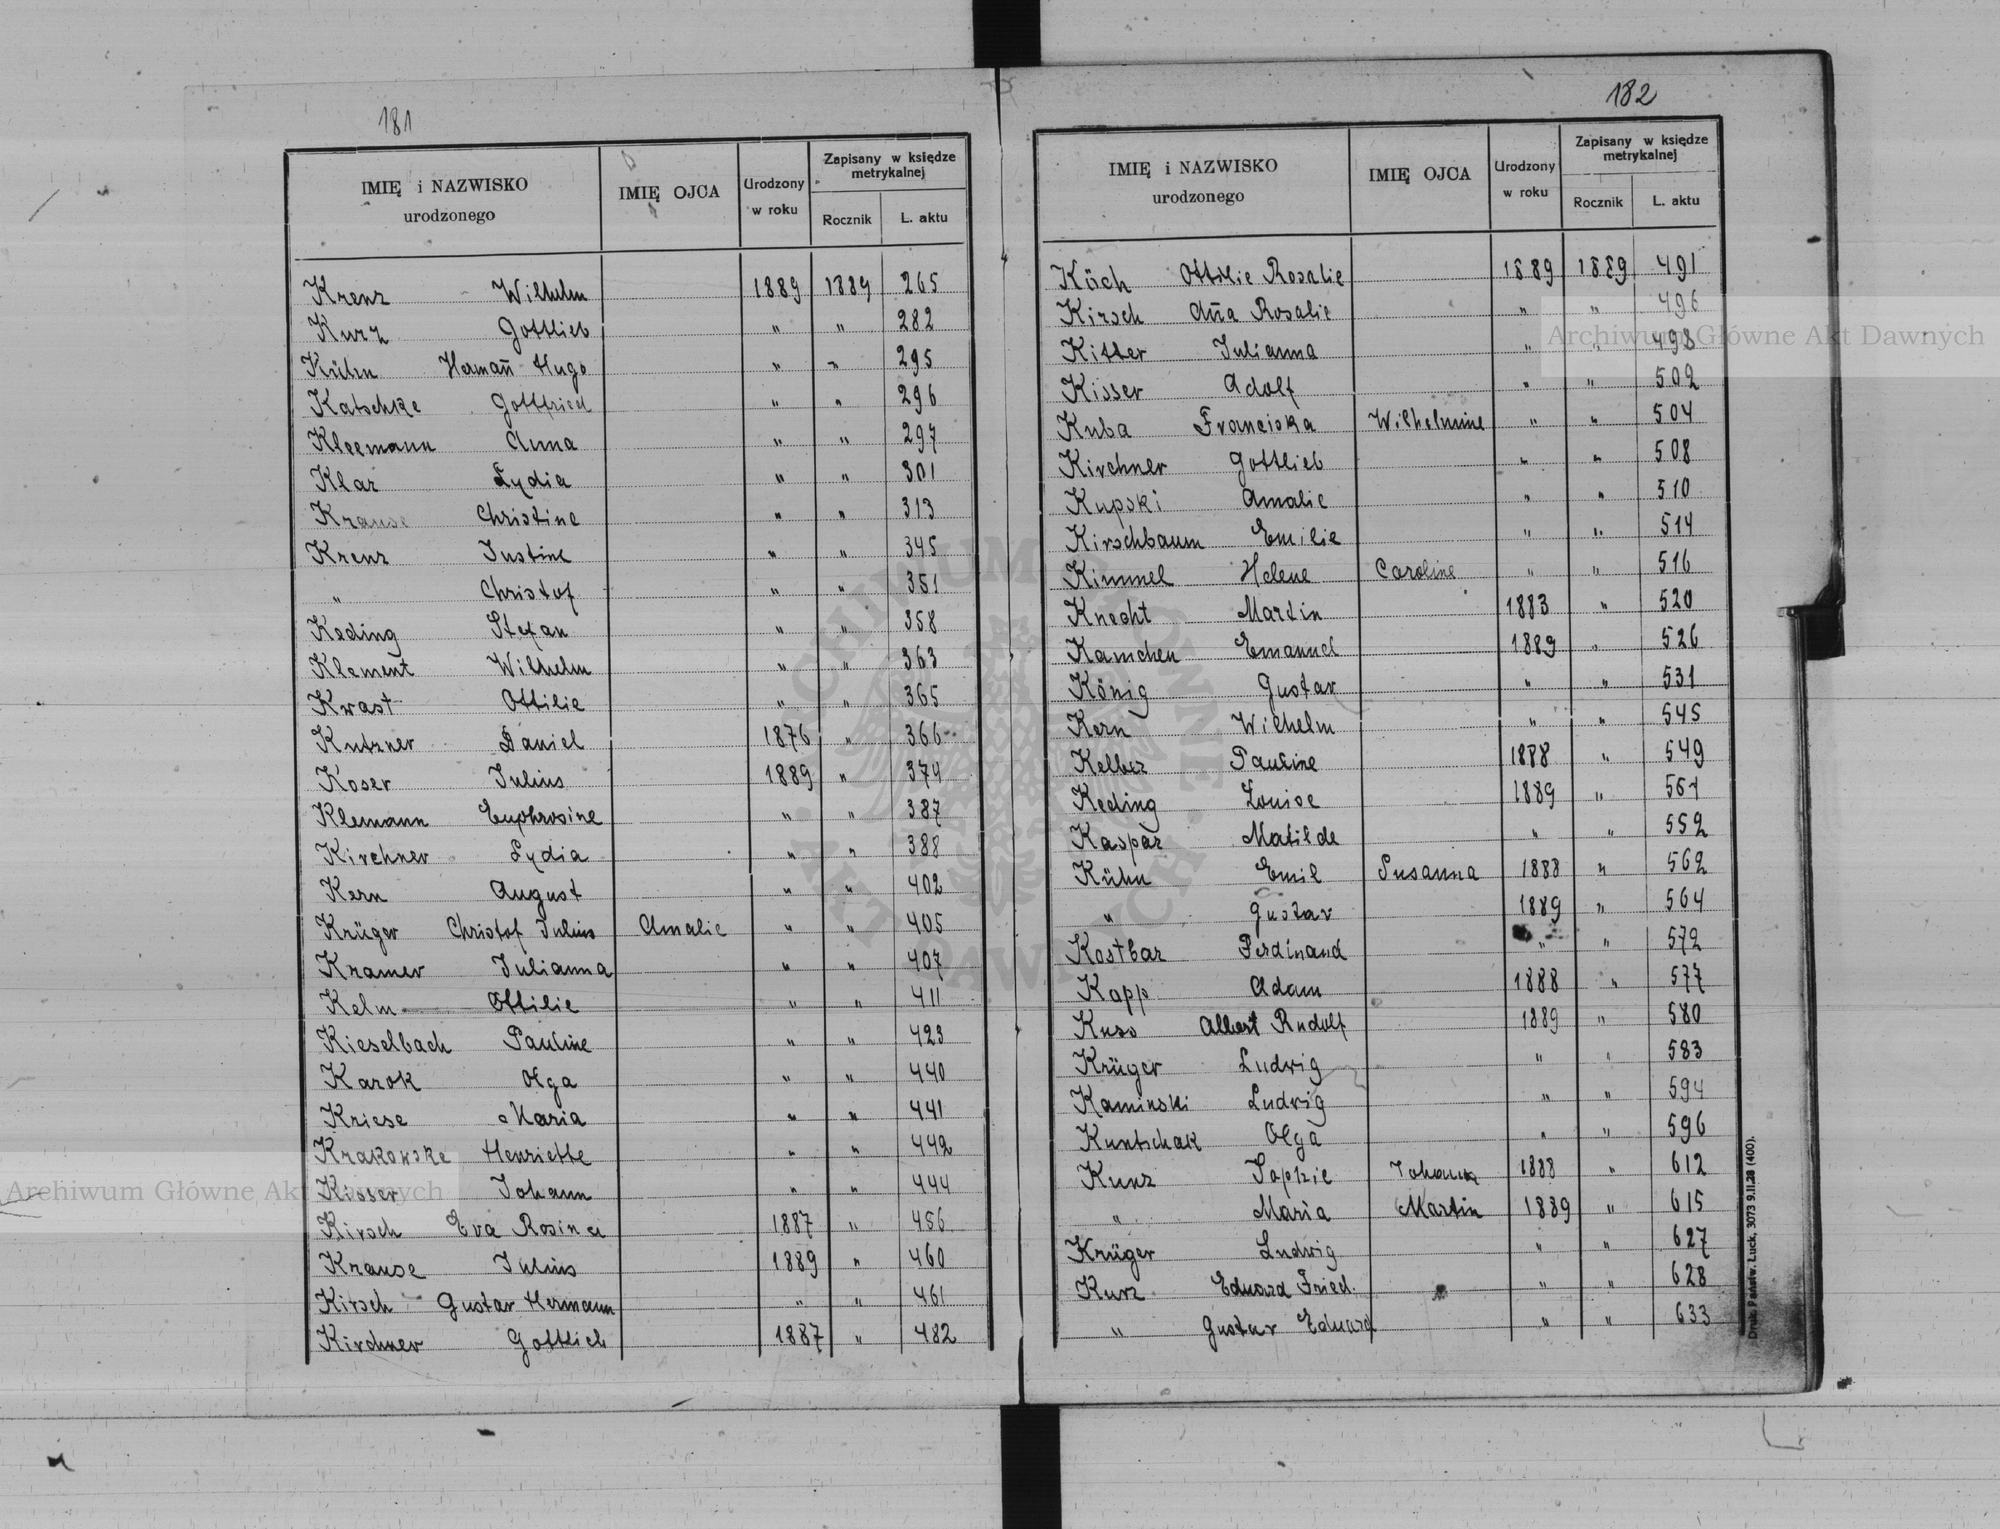 181
IMIĘ i NAZWISKO urodzonego | IMIĘ OJCA | Urodzony w roku | Zapisany w księdze metrykalnej | Rocznik | L. aktu
Krenz Wilhelm 1889 1889 265
Kurz Gottlieb " " 282
Kühn Hermañ Hugo " " 295
Katschke Gottfried " " 296
Kleemann Anna " " 297
Klar Lydia " " 301
Krause Christine " " 313
Krenz Justine " " 345
" Christof " " 351
Keding Stefan " " 358
Klement Wilhelm " " 363
Kwast Ottilie " " 365
Kutzner Daniel 1876 " 366
Koser Julius 1889 " 374
Klemann Euphrosine " " 387
Kirchner Lydia " " 388
Kern August " " 402
Krüger Christof Julius Amalie " " 405
Kramer Julianna " " 407
Kelm Ottilie " " 411
Kieselbach Pauline " " 423
Karok Olga " " 440
Kriese Maria " " 441
Krakowske Henriette " " 442
Kisser Johann " " 444
Kirsch Eva Rosina 1887 " 456
Krause Julius 1889 " 460
Kirsch Gustav Hermann " " 461
Kirchner Gottlieb 1887 " 482
182
IMIĘ i NAZWISKO urodzonego | IMIĘ OJCA | Urodzony w roku | Zapisany w księdze metrykalnej | Rocznik | L. aktu
Köch Ottilie Rosalie 1889 1889 491
Kirsch Aña Rosalie " " 496
Kitter Julianna " " 498
Kisser Adolf " " 502
Kuba Franciska Wilhelmine " " 504
Kirchner Gottlieb " " 508
Kupski Amalie " " 510
Kirschbaum Emilie " " 514
Kimmel Helene Caroline " " 516
Knecht Martin 1883 " 520
Kamchen Emanuel 1889 " 526
König Gustav " " 531
Kern Wilhelm " " 545
Kelber Pauline 1888 " 549
Keding Louise 1889 "
Kaspar Matilde " " 552
Kühn Emil Susanna 1888 " 562
" Gustav 1889 " 564
Kostbar Ferdinand " " 572
Kopp Adam 1888 " 577
Kuss Albert Rudolf 1889 " 580
Krüger Ludwig " " 583
Kaminski Ludwig " " 594
Kuntschak Olga " " 596
Kunz Sophie Johann 1888 " 612
" Maria Martin 1889 " 615
Krüger Ludwig " " 627
Kurz Eduard Fried. " " 628
" Gustav Eduard " " 633
Druk. Państw. Łuck, 3073 9.II.28 (400).
Archiwum Główne Akt Dawnych
Archiwum Główne Akt Dawnych
ARCHIWUM GŁÓWNE · AKT DAWNYCH ·